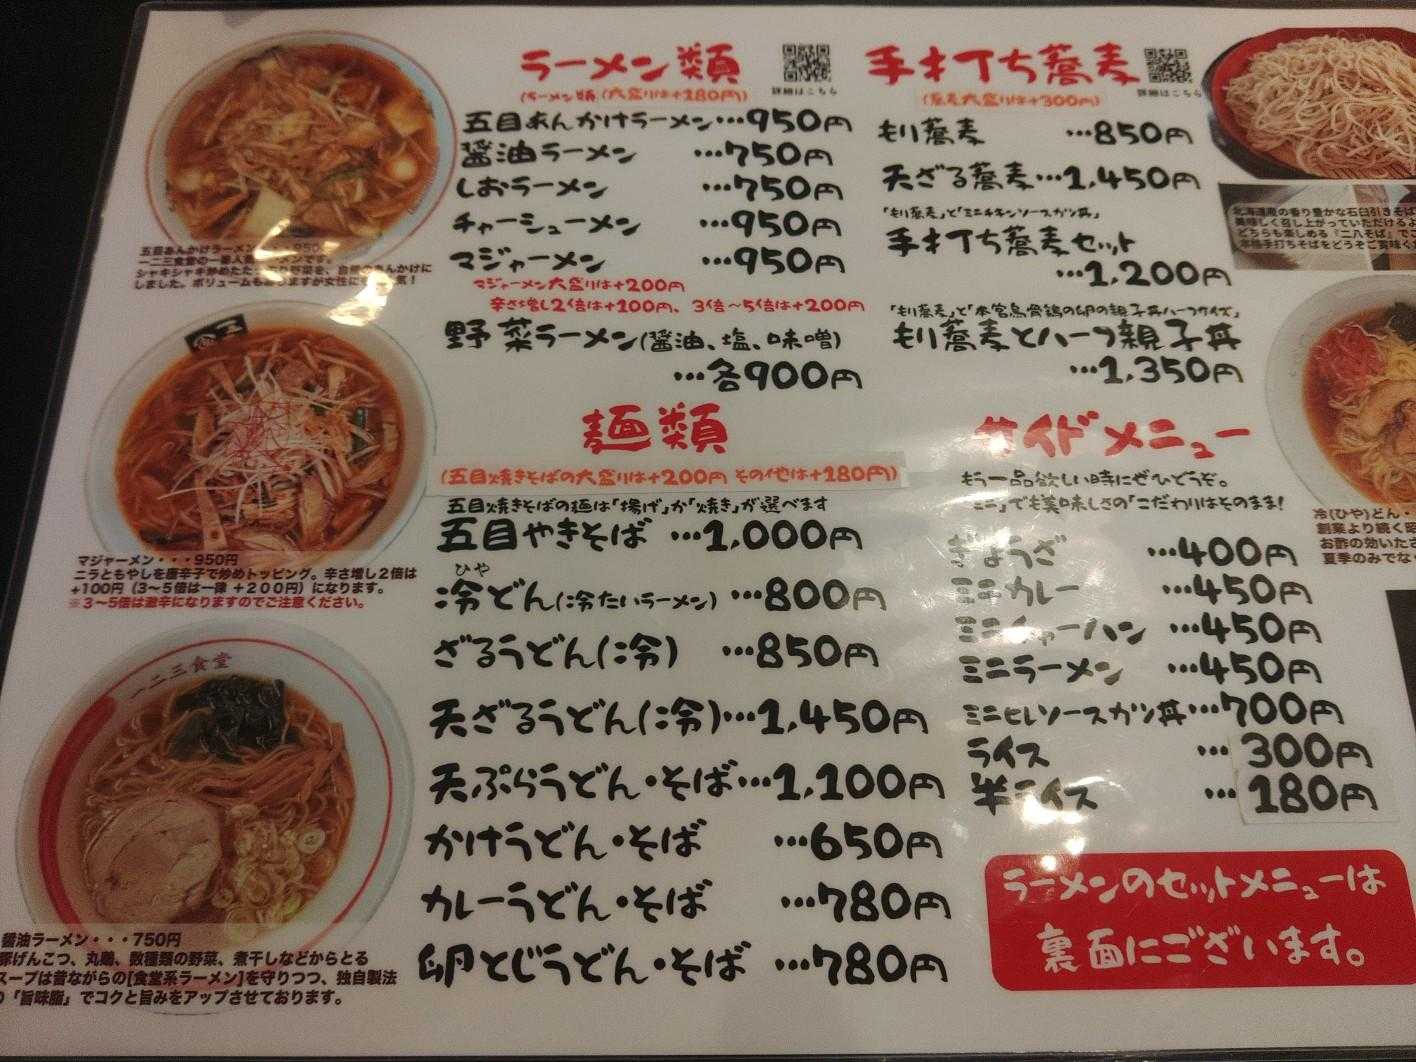 ラーメン類
詳細はこちら
(ラーメン類(大盛りは+180円)
五目あんかけラーメン…950円
醤油ラーメン …750円
しおラーメン …750円
チャーシューメン …950円
マジャーメン …950円
マジャーメン大盛りは+200円
辛さ増し2倍は+100円、3倍～5倍は+200円
野菜ラーメン(醤油、塩、味噌)
…各900円
麺類
(五目焼きそばの大盛りは+200円 その他は+180円)
五目焼きそばの麺は「揚げ」か「焼き」が選べます
五目やきそば …1,000円
ひや
冷どん(冷たいラーメン) …800円
ざるうどん(冷) …850円
天ざるうどん(冷)…1,450円
天ぷらうどん・そば…1,100円
かけうどん・そば …650円
カレーうどん・そば …780円
卵とじうどん・そば …780円
手打ち蕎麦
詳細はこちら
(蕎麦大盛りは+300円)
もり蕎麦 …850円
天ざる蕎麦…1,450円
「もり蕎麦」と「ミニチキンソースカツ丼」
手打ち蕎麦セット
…1,200円
「もり蕎麦」と「本宮烏骨鶏の卵の親子丼ハーフサイズ」
もり蕎麦とハーフ親子丼
…1,350円
サイドメニュー
もう一品欲しい時にぜひどうぞ。
「ミニ」でも美味しさの「こだわりはそのまま!
ぎょうざ …400円
ミニカレー …450円
ミニチャーハン …450円
ミニラーメン …450円
ミニヒレソースカツ丼…700円
ライス …300円
半ライス …180円
ラーメンのセットメニューは
裏面にございます。
五目あんかけラーメン・・・950
一二三食堂の一番人
シャキシャキ炒めた
しました。ボリュームも
マジャーメン・・・950円
ニラともやしを唐辛子で炒めトッピング。辛さ増し2倍は
+100円（3～5倍は一律 +200円）になります。
※3～5倍は激辛になりますのでご注意ください。
一二三食堂
醤油ラーメン・・・750円
豚げんこつ、丸鶏、数種類の野菜、煮干しなどからとる
スープは昔ながらの[食堂系ラーメン]を守りつつ、独自製法
の「旨味脂」でコクと旨みをアップさせております。
北海道産の香り豊かな石臼引きそば
美味しく召し上がっていただけるよ
どちらも楽しめる『二八そば』でご
本格手打ちそばをどうぞご賞味く
冷(ひや)どん・
創業より続く昭
お酢の効いたさ
夏季のみでな